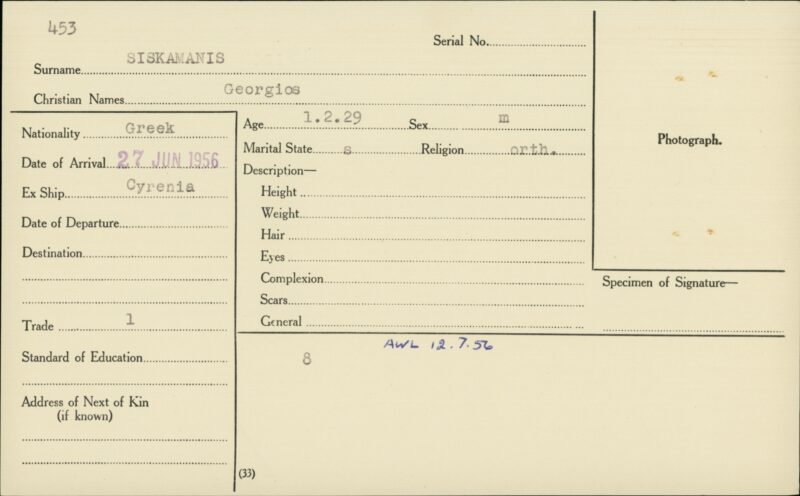 453
Serial No.
Surname SISKAMANIS
Christian Names Georgios
Nationality Greek
Date of Arrival 27 JUN 1956
Ex Ship Cyrenia
Date of Departure
Destination
Trade 1
Standard of Education
Address of Next of Kin
(if known)
Age 1.2.29 Sex m
Marital State s Religion orth.
Description—
Height
Weight
Hair
Eyes
Complexion
Scars
General
AWL 12.7.56
8
(33)
Photograph.
Specimen of Signature—